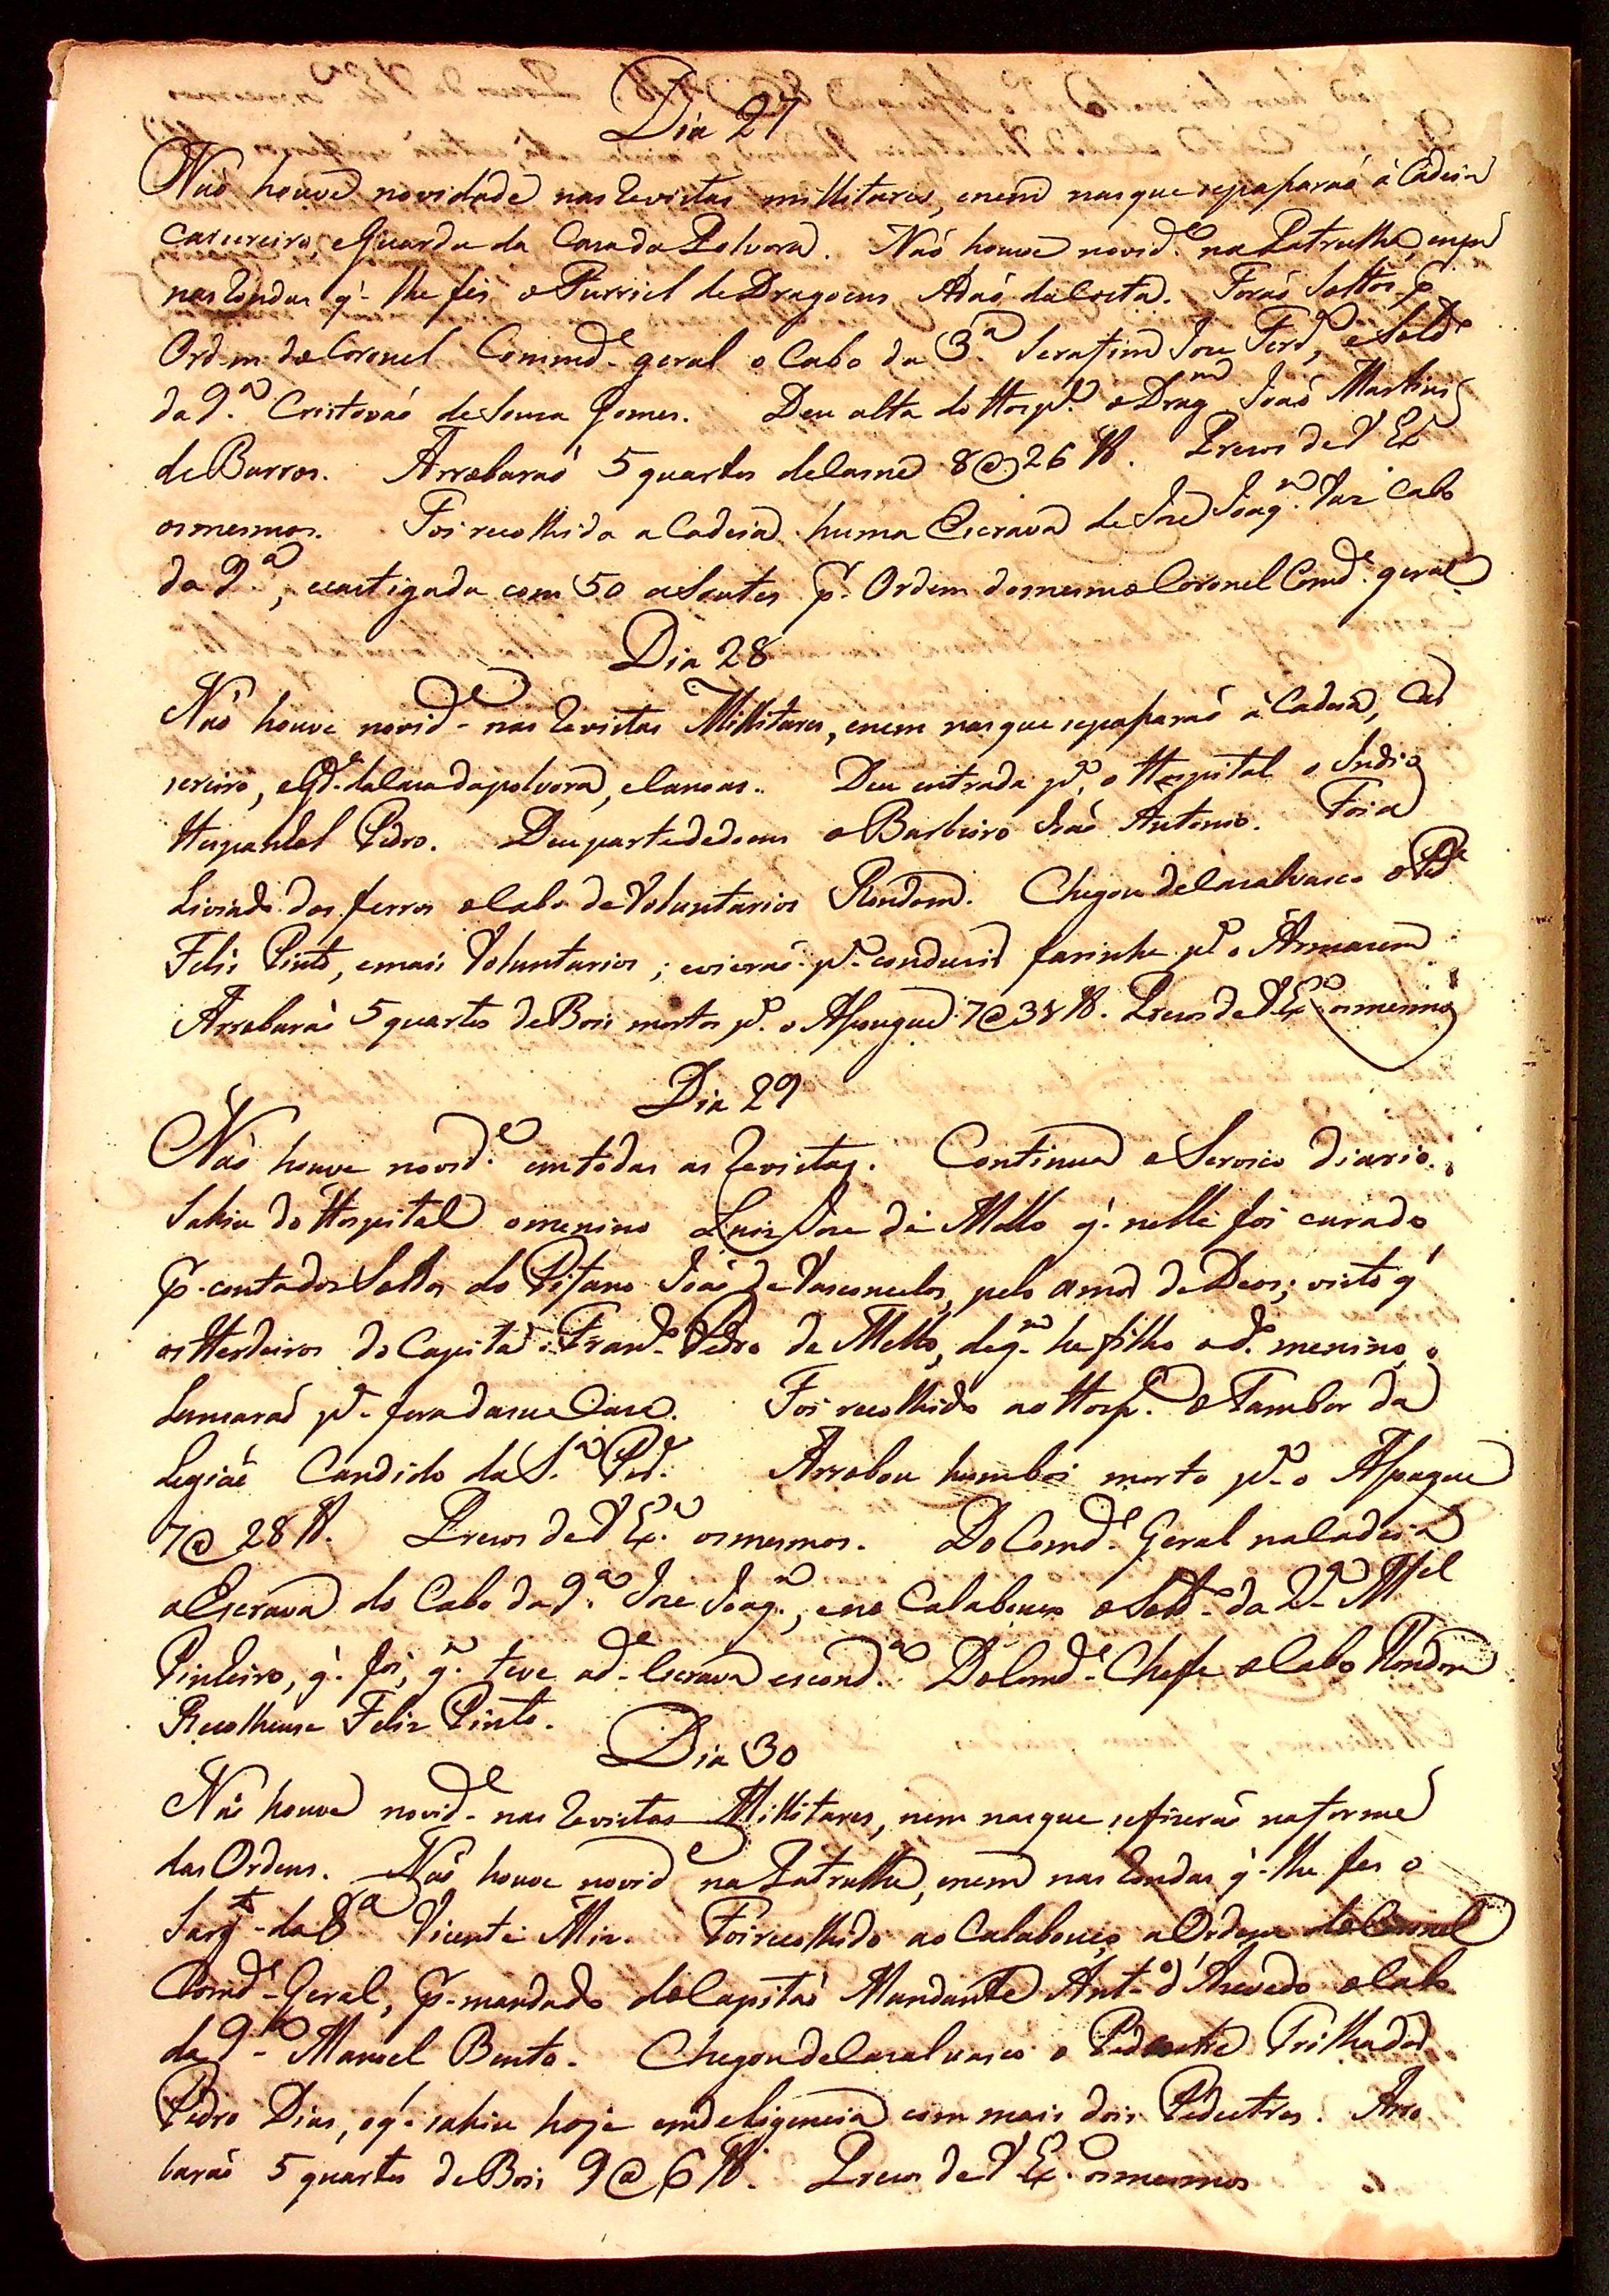 Dia 27
Naõ houve novidade nas Revistas millitares, enem nasque sepaſsaraõ á Cadeia
Carcereiro, eGuarda da Casa da Polvora. Naõ houve novid.e na Patrulha, enem
nas Rondas q' lhe fes o Furriel de Dragoens Adaõ da Costa. Foraõ Soltos p.
Ordem do Coronel Commd.e geral o Cabo da 3.a Serafim Joze Ferr.a, eSold.o
da 9.a Cristovaõ de Souza Gomes. Deu alta do Hosp.al o Drag.m Joaõ Martins
de Barros. Arrobaraõ 5 quartos deCarne 8@26 lb. Prezos de V Ex.a
osmesmos. Foi recolhida a Cadeia huma Escrava de Joze Joaq.m Vaz Cabo
da 9.a, ecastigada com 50 asoutes p. Ordem domesmo Coronel Comd.e geral
Dia 28
Naõ houve novid.e nas Revistas Millitares, enem nasque sepaſsaraõ á Cadeia, Car
sereiro, eGd.a daCasa dapolvora, eCanoas. Deu entrada p.a o Hospital o Indio
Hespanhol Pedro. Deu partededoente o Barbeiro Joaõ Antonio. Foi a
Liviado dos ferros oCabo deVoluntarios Rondom. Chegou deCasalvasco o Ped.e
Felis Pinto, emais Voluntarios; evieraõ p.a conduzir farinha p.a o Armazem
Arrobaraõ 5 quartos deBois mortos p.a o Aſougue 7@38 lb. Prezos deV Ex.a osmesmos
Dia 29
Naõ houve novid.e emtodas as Revistas. Continua oServiço diario.
Sahiu do Hospital omenino Luiz Joze de Mello q' nelle foi curado
p. contados Soldos do Pifano Joaõ de Vasconcelos, pelo amor deDeos; visto q'
osHerdeiros do Capitaõ Fran.co Pedro de Mello, deq.m he filho od.o menino, o
Lansaraõ p.a fora dasua Casa. Foi recolhido ao Hosp.al oTambor da
Legiaõ Candido da S.a Per.a Arrobou humboi morto p.a o Aſougue
7@28 lb. Prezos deV Ex.a osmesmos. DoComd.e Geral naCadeia
aEscrava do Cabo da 9.a Joze Joaq.m, eno Calabouço oSold.o da 2.a M.el
Pinheiro, q' foi, q.m teve ad.a Escrava escond.a DoComd.e Chefe oCabo Rondom
Recolheuse Feliz Pinto.
Dia 30
Naõ houve novid.e nas Revistas Millitares, nem nasque sefizeraõ naforma
das Ordens. Naõ houve novid.e na Patrulha, enem nas Rondas q' lhe fes o
Sarg.to da 8.a Vicente Miz. Foi recolhido ao Calabouço a Ordem do Coronel
Comd.e Geral, p. mandado doCapitaõ Mandante Ant.o d'Azevedo oCabo
da 9.a Manoel Bento. Chegou deCasalvasco o Pedestre Trilhador
Pedro Dias, oq' sahiu hoje emdeligencia com mais dois Pedestres. Arro
baraõ 5 quartos deBois 9@6 lb. Prezos de V Ex.a osmesmos